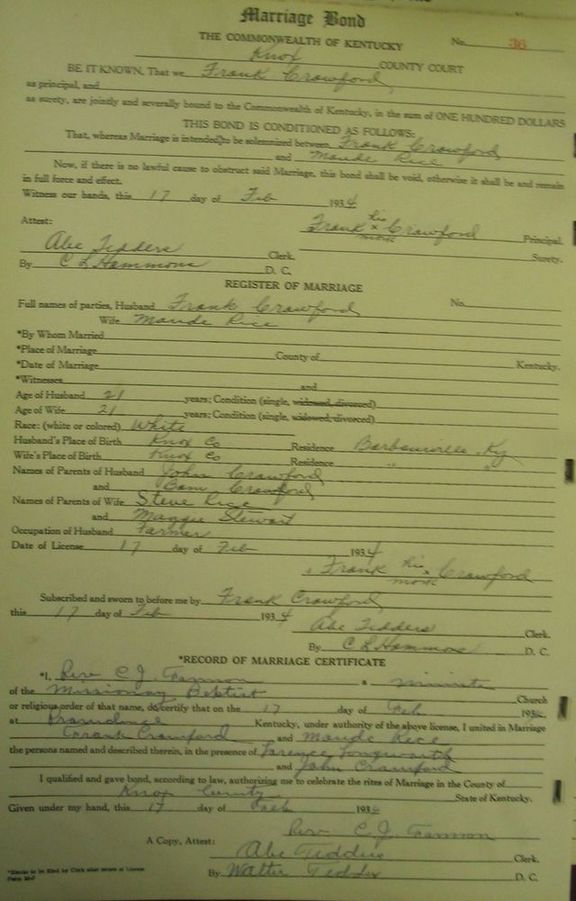 Marriage Bond
THE COMMONWEALTH OF KENTUCKY No. 36
Knox COUNTY COURT
BE IT KNOWN, That we Frank Crawford,
as principal, and
as surety, are jointly and severally bound to the Commonwealth of Kentucky, in the sum of ONE HUNDRED DOLLARS
THIS BOND IS CONDITIONED AS FOLLOWS:
That, whereas Marriage is intended to be solemnized between Frank Crawford,
and Maude Rice
Now, if there is no lawful cause to obstruct said Marriage, this bond shall be void, otherwise it shall be and remain
in full force and effect.
Witness our hands, this 17 day of Feb 1934
Frank his x mark Crawford Principal.
Attest: Surety.
Abe Tedders Clerk.
By C L Hammons D. C.
REGISTER OF MARRIAGE
Full names of parties, Husband Frank Crawford No.
Wife Maude Rice
*By Whom Married
*Place of Marriage County of Kentucky.
*Date of Marriage
*Witnesses and
Age of Husband 21 years; Condition (single, widowed, divorced)
Age of Wife 21 years; Condition (single, widowed, divorced)
Race: (white or colored) White
Husband's Place of Birth Knox Co Residence Barbourville, Ky
Wife's Place of Birth Knox Co Residence " "
Names of Parents of Husband John Crawford
and Crawford
Names of Parents of Wife Steve Rice
and Maggie Stewart
Occupation of Husband Farmer
Date of License 17 day of Feb 1934
Frank his x mark Crawford
Subscribed and sworn to before me by Frank Crawford
this 17 day of Feb 1934
Abe Tedders Clerk.
By C L Hammons D. C.
*RECORD OF MARRIAGE CERTIFICATE
*I, Rev C. J. a
of the Missionary Baptist Church
or religious order of that name, do certify that on the 17 day of Feb 193
at Kentucky, under authority of the above license, I united in Marriage
Frank Crawford and Maude Rice
the persons named and described therein, in the presence of
and John Crawford
I qualified and gave bond, according to law, authorizing me to celebrate the rites of Marriage in the County of
Knox County State of Kentucky.
Given under my hand, this 17 day of Feb 193
Rev C. J.
A Copy, Attest: Abe Tedders Clerk.
By Walter Tedders D. C.